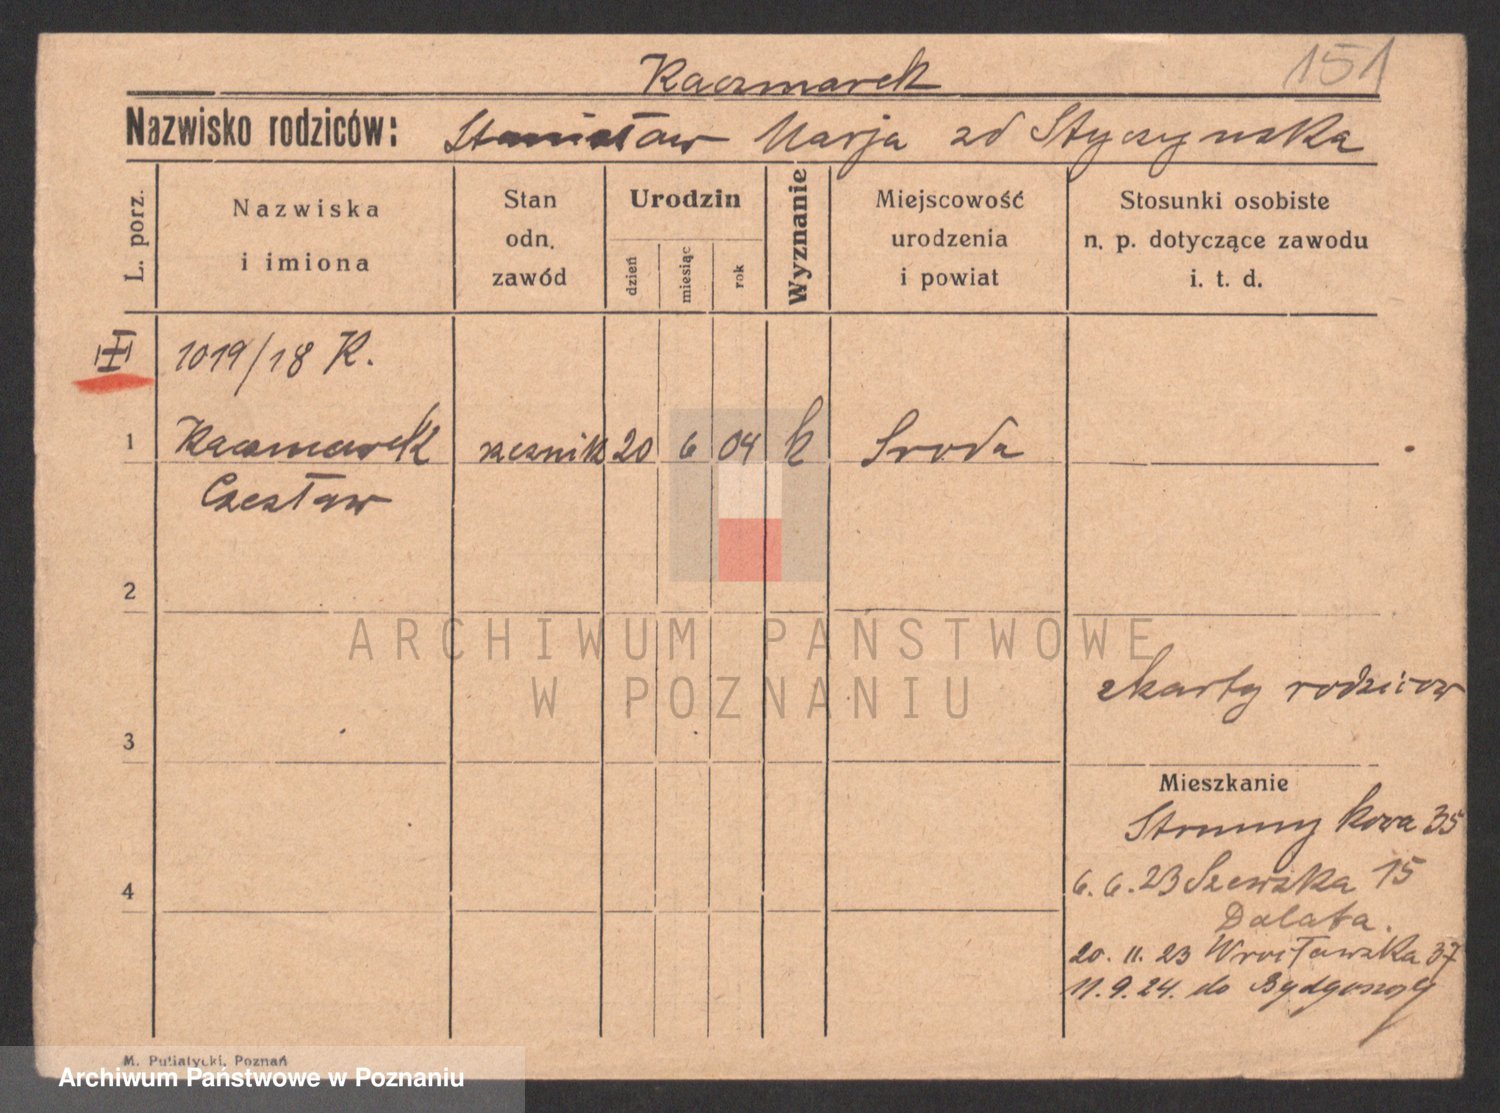 151
Kaczmarek
Nazwisko rodziców: Stanisław Marja zd Styczyńska
L. porz.
Nazwiska
i imiona
Stan
odn.
zawód
Urodzin
dzień
miesiąc
rok
Wyznanie
Miejscowość
urodzenia
i powiat
Stosunki osobiste
n. p. dotyczące zawodu
i. t. d.
III 1019/18 K.
1 Kaczmarek rzeźnik 20 6 04 k Sroda
Czesław
2
ARCHIWUM PAŃSTWOWE
W POZNANIU
z karty rodziców
3
Mieszkanie
Strumykowa 35
4
6. 6. 23 Szewska 15
Dalata.
20. 11. 23 Wrocławska 37
11. 9. 24. do Bydgoszczy
M. Putiatycki, Poznań
Archiwum Państwowe w Poznaniu